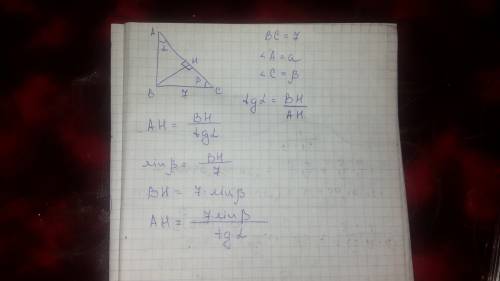 A
α
H
β
B
7
C
BC = 7
∠A = α
∠C = β
tg α = BH / AH
AH = BH / tg α
sin β = BH / 7
BH = 7 · sin β
AH = 7 sin β / tg α